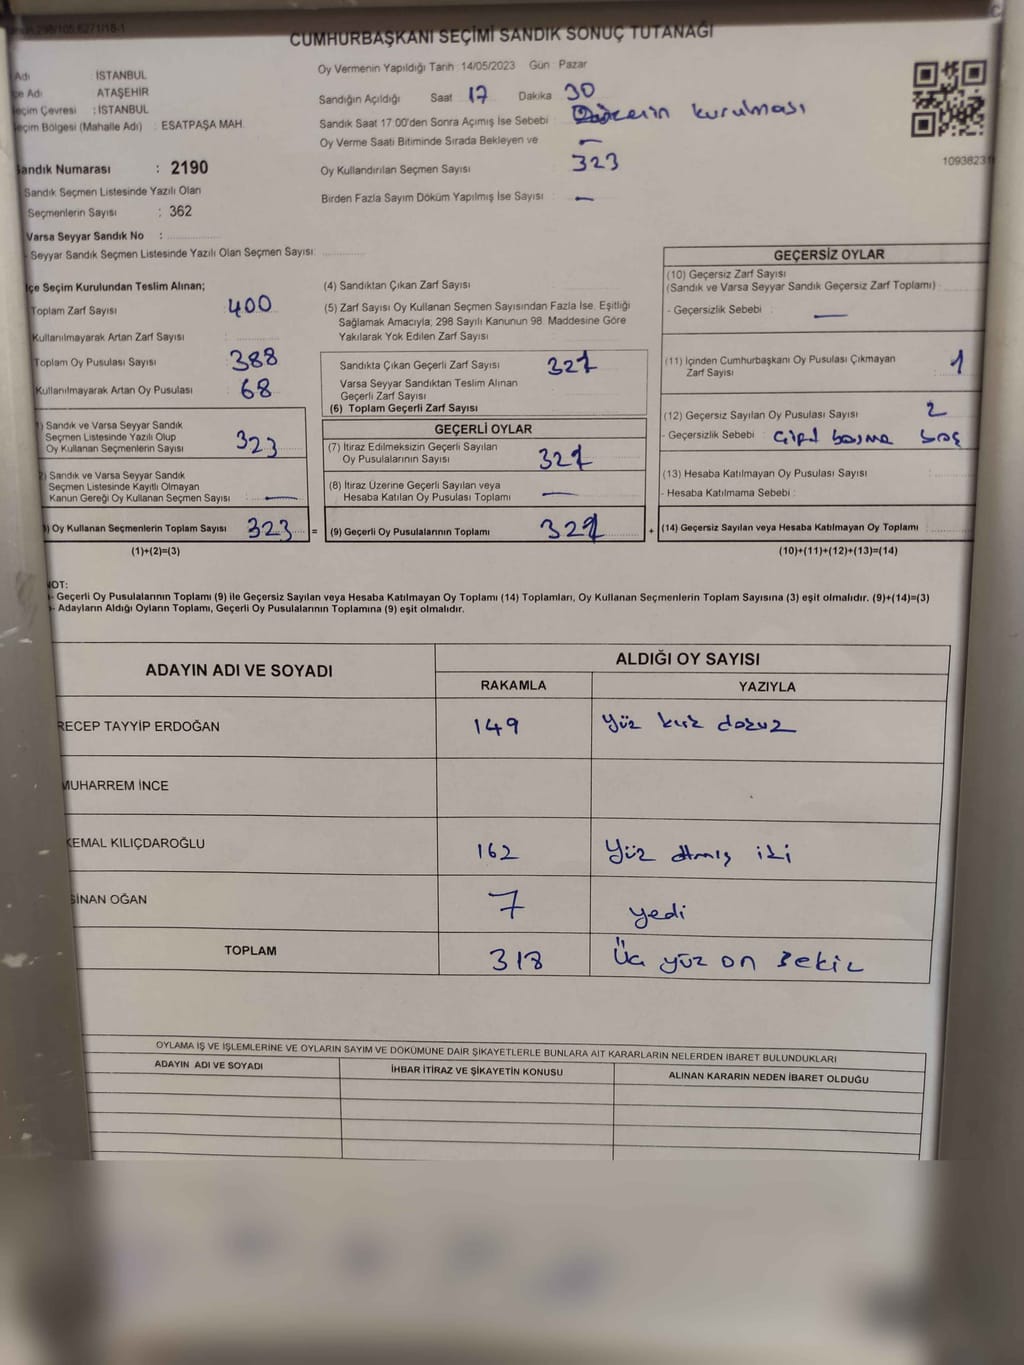 298/105.6271/18-1
CUMHURBAŞKANI SEÇİMİ SANDIK SONUÇ TUTANAĞI
Adı : İSTANBUL
Adı : ATAŞEHİR
Seçim Çevresi : İSTANBUL
Seçim Bölgesi (Mahalle Adı) : ESATPAŞA MAH.
Sandık Numarası : 2190
Sandık Seçmen Listesinde Yazılı Olan
Seçmenlerin Sayısı : 362
Varsa Seyyar Sandık No :
Seyyar Sandık Seçmen Listesinde Yazılı Olan Seçmen Sayısı:
Oy Vermenin Yapıldığı Tarih :14/05/2023 Gün : Pazar
Sandığın Açıldığı Saat 17 Dakika 30
Sandık Saat 17.00'den Sonra Açımış İse Sebebi : kurulması
Oy Verme Saati Bitiminde Sırada Bekleyen ve –
Oy Kullandırılan Seçmen Sayısı 323
Birden Fazla Sayım Döküm Yapılmış İse Sayısı : –
1093823
İlçe Seçim Kurulundan Teslim Alınan;
Toplam Zarf Sayısı 400
Kullanılmayarak Artan Zarf Sayısı
Toplam Oy Pusulası Sayısı 388
Kullanılmayarak Artan Oy Pusulası 68
1) Sandık ve Varsa Seyyar Sandık
Seçmen Listesinde Yazılı Olup
Oy Kullanan Seçmenlerin Sayısı 323
2) Sandık ve Varsa Seyyar Sandık
Seçmen Listesinde Kayıtlı Olmayan
Kanun Gereği Oy Kullanan Seçmen Sayısı : –
3) Oy Kullanan Seçmenlerin Toplam Sayısı 323 =
(1)+(2)=(3)
(4) Sandıktan Çıkan Zarf Sayısı
(5) Zarf Sayısı Oy Kullanan Seçmen Sayısından Fazla İse, Eşitliği
Sağlamak Amacıyla; 298 Sayılı Kanunun 98. Maddesine Göre
Yakılarak Yok Edilen Zarf Sayısı
Sandıkta Çıkan Geçerli Zarf Sayısı
Varsa Seyyar Sandıktan Teslim Alınan
Geçerli Zarf Sayısı
(6) Toplam Geçerli Zarf Sayısı
GEÇERLİ OYLAR
(7) İtiraz Edilmeksizin Geçerli Sayılan
Oy Pusulalarının Sayısı
(8) İtiraz Üzerine Geçerli Sayılan veya
Hesaba Katılan Oy Pusulası Toplamı –
(9) Geçerli Oy Pusulalarının Toplamı +
GEÇERSİZ OYLAR
(10) Geçersiz Zarf Sayısı
(Sandık ve Varsa Seyyar Sandık Geçersiz Zarf Toplamı) :
- Geçersizlik Sebebi : –
(11) İçinden Cumhurbaşkanı Oy Pusulası Çıkmayan 1
Zarf Sayısı
(12) Geçersiz Sayılan Oy Pusulası Sayısı 2
- Geçersizlik Sebebi :
(13) Hesaba Katılmayan Oy Pusulası Sayısı
- Hesaba Katılmama Sebebi :
(14) Geçersiz Sayılan veya Hesaba Katılmayan Oy Toplamı
(10)+(11)+(12)+(13)=(14)
NOT:
- Geçerli Oy Pusulalarının Toplamı (9) ile Geçersiz Sayılan veya Hesaba Katılmayan Oy Toplamı (14) Toplamları, Oy Kullanan Seçmenlerin Toplam Sayısına (3) eşit olmalıdır. (9)+(14)=(3)
- Adayların Aldığı Oyların Toplamı, Geçerli Oy Pusulalarının Toplamına (9) eşit olmalıdır.
ADAYIN ADI VE SOYADI
ALDIĞI OY SAYISI
RAKAMLA YAZIYLA
RECEP TAYYİP ERDOĞAN 149 Yüz kırk dokuz
MUHARREM İNCE
KEMAL KILIÇDAROĞLU 162 Yüz atmış iki
SİNAN OĞAN 7 yedi
TOPLAM 318 Üç yüz on sekiz
OYLAMA İŞ VE İŞLEMLERİNE VE OYLARIN SAYIM VE DÖKÜMÜNE DAİR ŞİKAYETLERLE BUNLARA AİT KARARLARIN NELERDEN İBARET BULUNDUKLARI
ADAYIN ADI VE SOYADI İHBAR İTİRAZ VE ŞİKAYETİN KONUSU ALINAN KARARIN NEDEN İBARET OLDUĞU